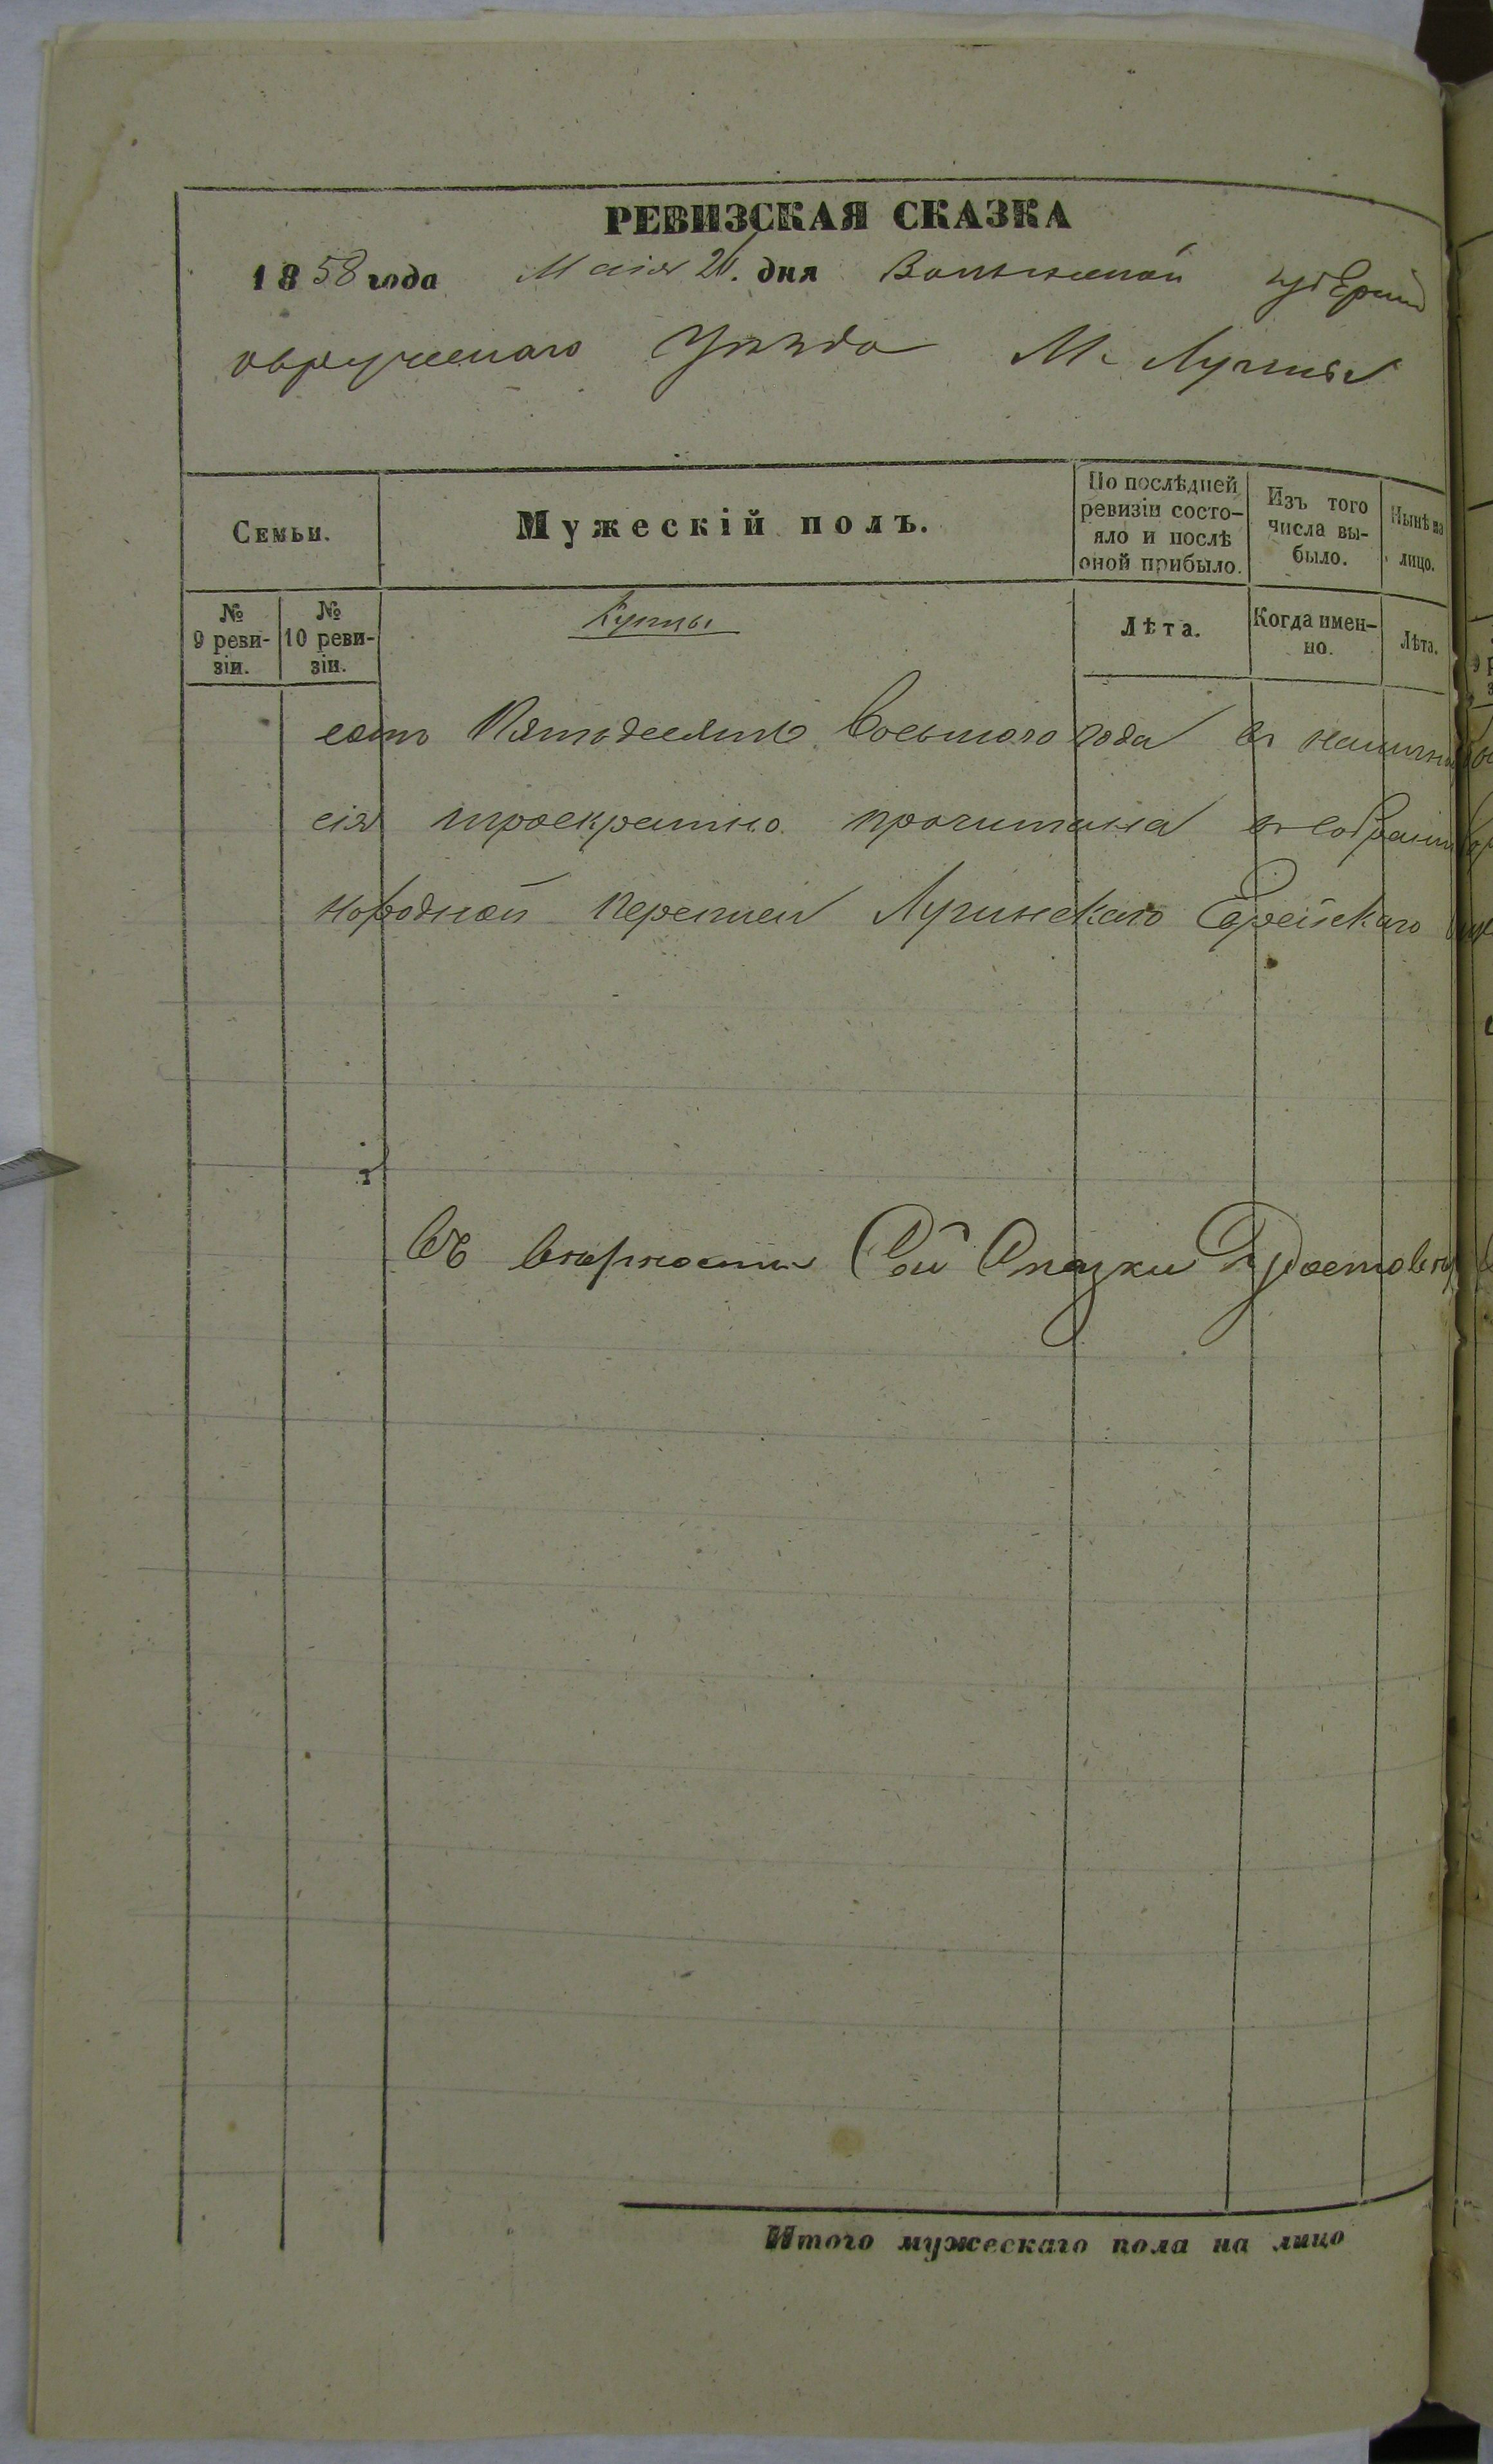 РЕВИЗСКАЯ СКАЗКА
1858 года Маія дня Волынской губерніи
овручскаго Уѣзда М. Лугины
Семьи.
Мужескій полъ.
По послѣдней ревизіи состо-
яло и послѣ
оной прибыло.
Изъ того
числа вы-
было.
Нынѣ на
лицо.
№
9 реви-
зіи.
№
10 реви-
зіи.
Купцы
Лѣта.
Когда имен-
но.
Лѣта.
сотъ Пятьдесятъ Восьмого года
сія троекратно прочитана въ собраніи
народной переписи Лугинскаго Еврейскаго
Въ верности Сей Сказки
Итого мужескаго пола на лицо